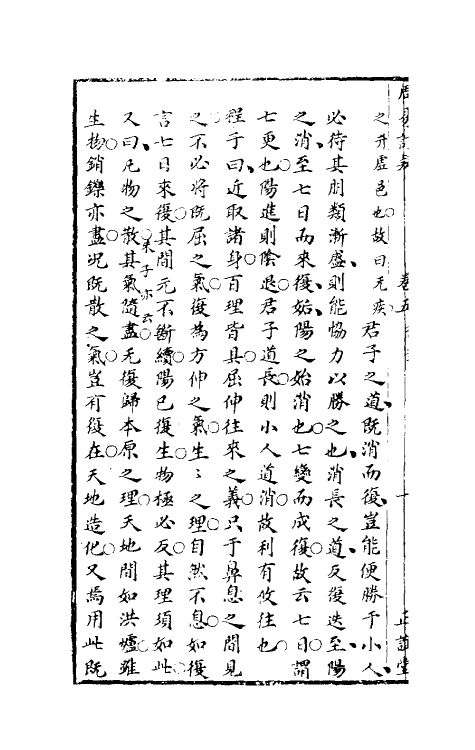 之升虛邑也故曰无疾君子之道既消而復豈能便勝于小人
必待其朋類漸盛則能協力以勝之也消長之道反復迭至陽
之消至七日而來復姤陽之始消也七變而成復故云七日謂
七更也陽進則陰退君子道長則小人道消故利有攸往也
程子曰近取諸身百理皆具屈伸往來之義只于鼻息之間見
之不必將既屈之氣復為方伸之氣生生之理自然不息如復
言七日來復其間元不斷續陽已復生物極必反其理須如此
朱子亦云
又曰凡物之散其氣隨盡无復歸本原之理天地間如洪爐雖
生物銷鑠亦盡况既散之氣豈有復在天地造化又焉用此既
卷五
十
正誼堂